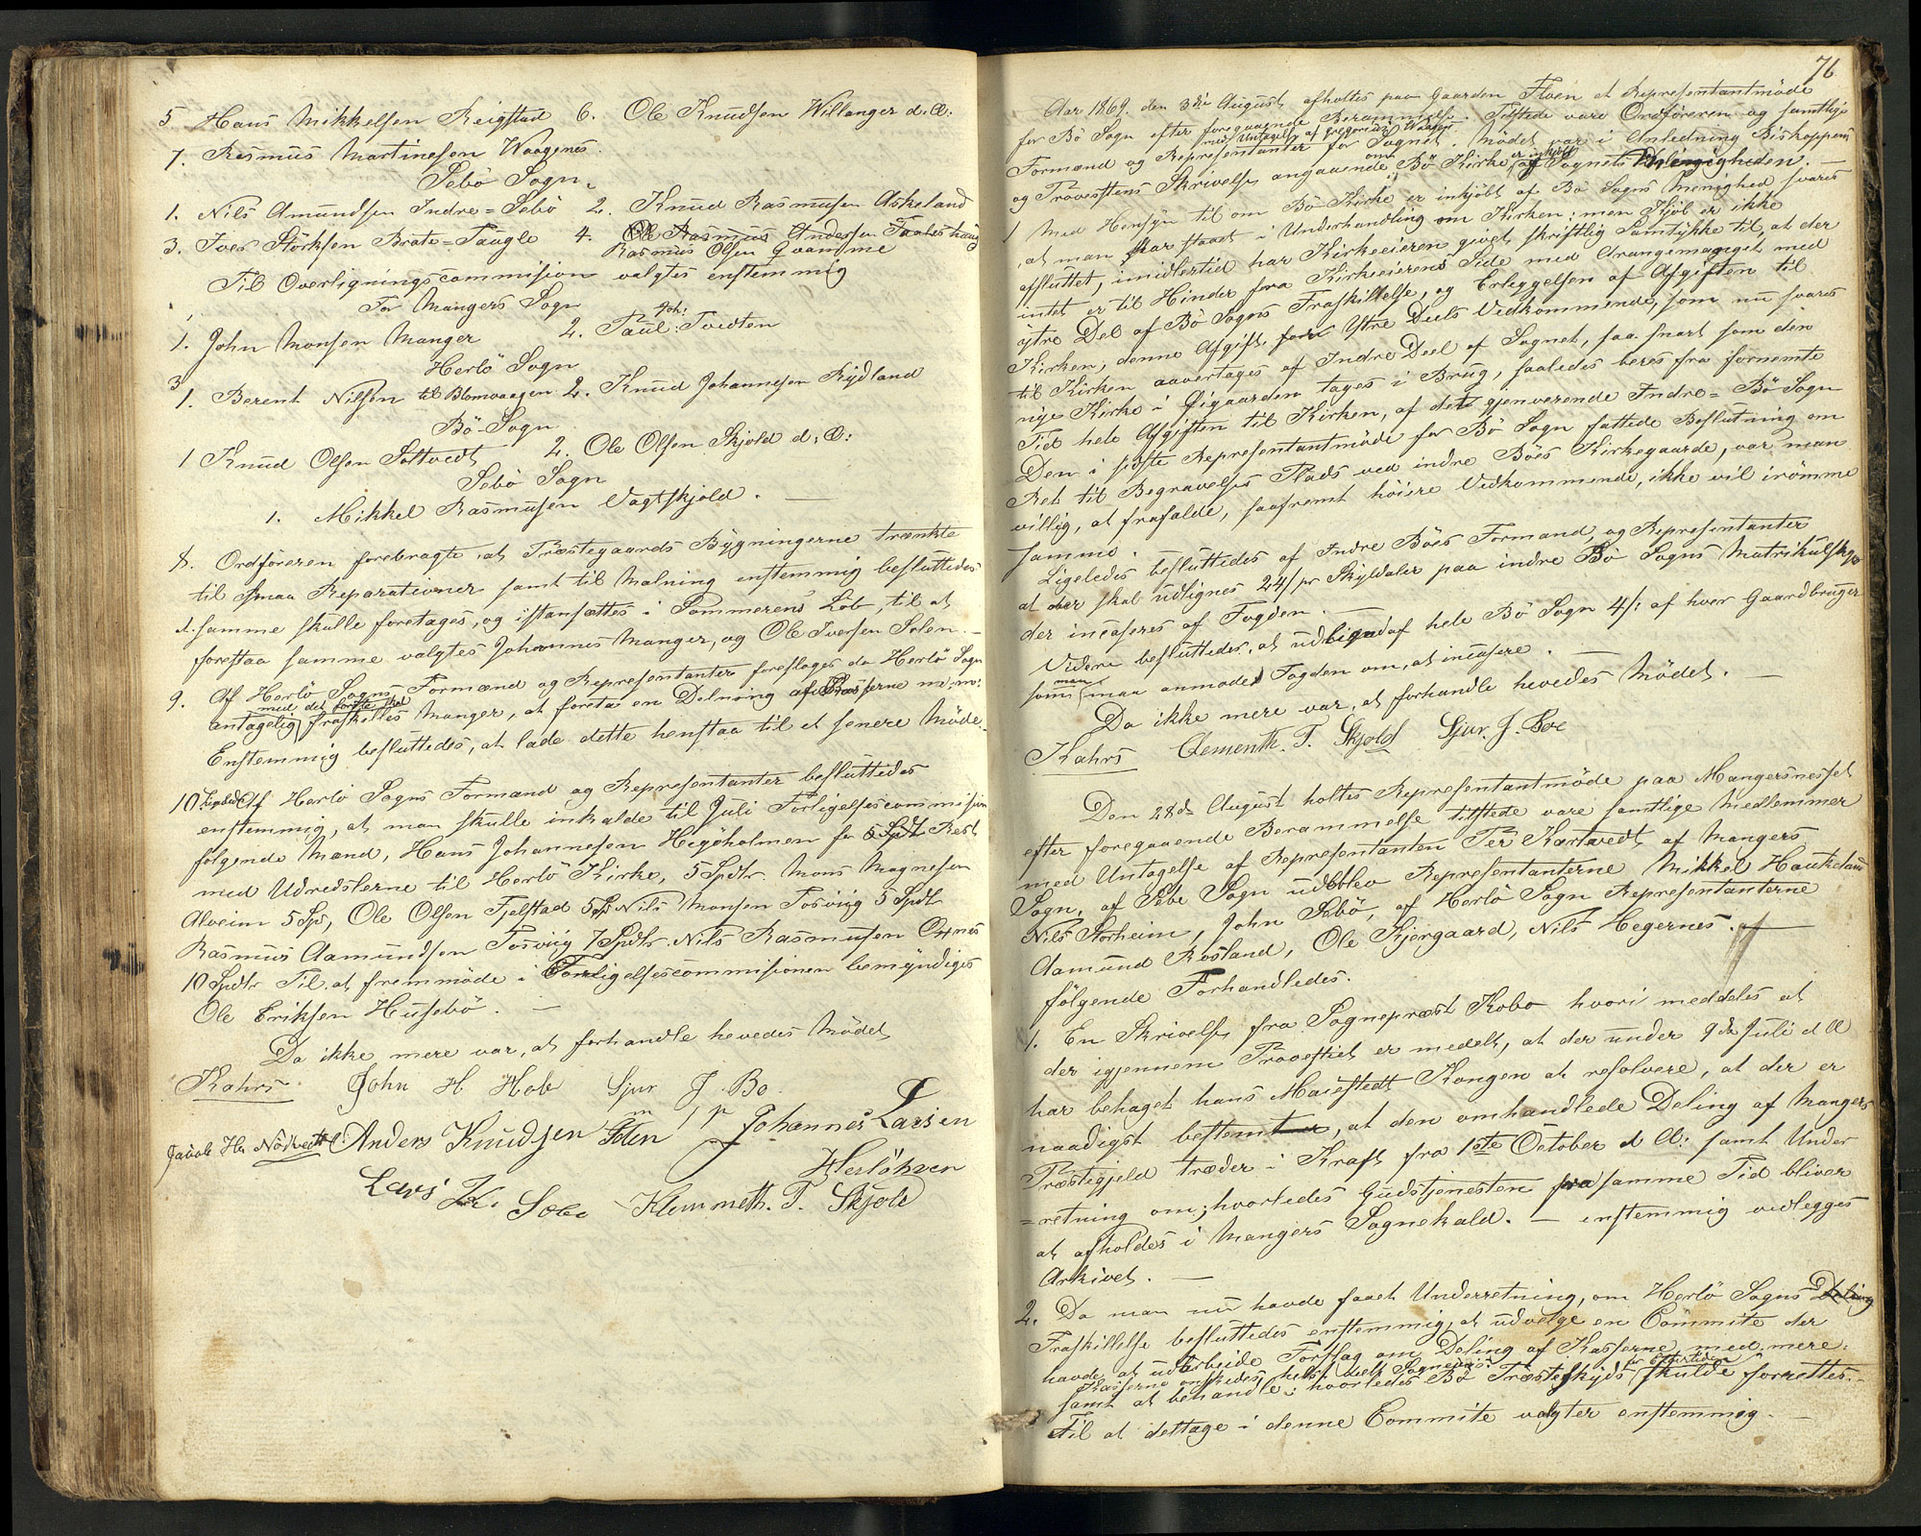 5 Hans Mikkelsen Reigstad 6. Ole Knudsen Willanger d. Æ.
7. Rasmus Martinesen Waagenes.
Sebö Sogn.
1. Nils Amundsen Indre=Sebö 2. Knud Rasmusen Askeland
3. Iver Störksen Brate=Taugle 4. Ole Rasmus Andersen
Rasmus Olsen Qvamme
Til Overligningscommision valgtes enstemmig
For Mangers Sogn
1. John Monsen Manger 2. Paul Joh: Tvedten
Herlö Sogn
1. Berent Nilsen til Blomvaagen 2. Knud Johannesen Rydland
Bö Sogn
1 Knud Olsen Soltvedt 2. Ole Olsen Skjold d: Æ:
Sebö Sogn
1. Mikkel Rasmusen Vagtskjold. —
8. Ordföreren forebragte at Præstegaards Bygningerne trænkte
til smaa Reparationer samt til Malning enstemmig besluttedes
at samme skulle foretages, og istansættes i Sommerens Löb, til at
forestaa samme valgtes Johannes Manger, og Ole Iversen Solem. —
9. Af Herlö Sogns Formænd og Representanter foresloges da Herlö Sogn
med det förste skal
antagelig fraskilles Manger, at foreta en Delning af Kasserne m: m:
Enstemmig besluttedes, at lade dette henstaa til et senere Möde.
10 Ligeled Af Herlö Sogns Formænd og Representanter besluttedes
enstemmig, at man skulle inkalde til Juli Forligelsescommision
følgende Mænd, Hans Johannesen Hegöholmen for Rest
med Udredslerne til Herlö Kirke, 5 Spdlr Mons Magnesen
Alveim 5 Spd, Ole Olsen Fjelstad 5 Spd Nils Monsen Tosviig 5 Spdlr
Rasmus Aamundsen Tosviig 7 Spdlr. Nils Rasmusen Oxnes
10 Spdlr Til at fremmöde i Forligelsescommisionen bemyndiges
Ole Eriksen Husebö. —
Da ikke mere var, at forhandle hevedes Mödet
Kahrs. John H. Hole Sjur J. Bö
Jacob Hs Nödvedt Anders Knudsen Johannes Larsen
Herlöhven
Lars K. Sebö Klemmeth. T. Skjold
76
Aar 1869. den 3die August afholtes paa Gaarden Floen et Representantmöde
for Bö Sogn efter foregaaende Berammelse. Tilstede vare Ordföreren og samtlige
med Untagelse af Gregorius Waage.
Formænd og Representanter for Sognet. Mödet var i Anledning Biskoppens
og Provstens Skrivelse angaaende om Bö Kirke er inkjöbt af Sognets Menigheden. —
1 Med Hensyn til om Bö Kirke er inkjöbt af Bö Sogns Menighed, svares
, at man har staaet i Underhandling om Kirken; men Kjöb er ikke
afsluttet, imidlertid har Kirkeeieren givet skriftlig Samtykke til, at der
intet er til Hinder fra Kirkeeierens Side med Arangemanget med
ytre Del af Bö Sogns Fraskillelse, og Erleggelsen af Afgiften til
Kirken, denne Afgift for Ytre Deels Vidkommende, som nu svares
til Kirken aavertages af Indre Deel af Sognet, saa snart som den
nye Kirke i Öigaarden tages i Brug, saaledes beres fra fornemte
Tid hele Afgiften til Kirken, af det gjenverende Indre=Bö Sogn
Den i siste Representantmöde for Bö Sogn fattede Beslutning om
Ret til Begravelses Plads ved indre Böes Kirkegaarde, var man
villig, at frafalde, saafremt höiere Vidkommende, ikke vil irömme
samme.
Ligeledes besluttedes af Indre Böes Formænd, og Representanter
at der skal udlignes 24/ pr Skyldaler paa indre Bö Sogns Matrikulskyld
der incaseres af Fogden —
Videre besluttedes, at udligne af hele Bö Sogn 4/: af hver Gaardbruger
som man maa anmode Fogden om, at incasere. —
Da ikke mere var, at forhandle hevedes Mödet. —
Kahrs Clementh. T. Skjold Sjur. J. Boe
Den 28de August holtes Representantmöde paa Mangersnesset
efter foregaaende Berammelse tilstede vare samtlige Medlemmer
med Untagelse af Representanten Per Kartvedt af Mangers
Sogn, af Sebe Sogn udeblev Representanterne Mikkel Haukeland
Nils Storheim, John Sebö, af Herlö Sogn Representanterne
Aamund Rosland, Ole Kjergaard, Nils Hegernes. —
fölgende Forhandledes.
1. En Skrivelse fra Sogneprest Kobro hvori meddeles at
der igjennem Provstiet er medelt, at der under 9de Juli d A
har behaget hans Maiestedt Kongen at resolvere, at der er
naadigst bestemt, at den omhandlede Deling af Mangers
Præstegjeld træder i Kraft fra 1ste October d A: samt Under
=retning om; hvorledes Gudstjenesten fra samme Tid bliver
at afholdes i Mangers Sognekald. — enstemmig vedlegges
Arkivet. —
2. Da man nu havde faaet Underretning, om Herlö Sogns Deling
Fraskillelse besluttedes enstemmig, at udvelge en Committe der
havde at udarbeide Forslag om Deling af Kasserne med mere:
Kasserne onskedes helst delt Sogneviis. for Eftertiden
samt at behandle: hvorledes Bö Præsteskyds skulde forrettes. —
Til at deltage i denne Committe valgtes enstemmig. —